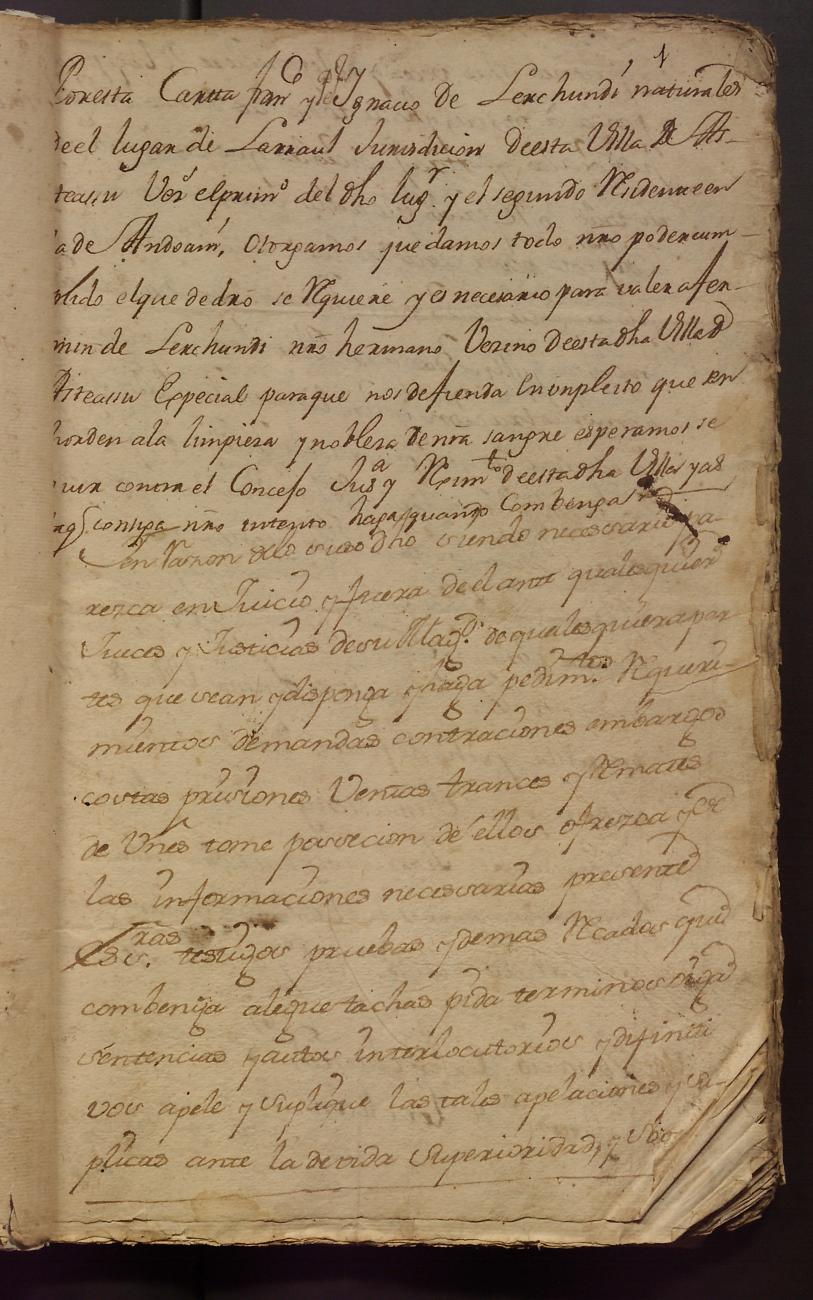 1
Poresta Cartta fran.co y Ygnacio de Lerchundi naturales
de el lugar de Larraul Jurisdicion de esta Villa de As-
teasu Vez.o el prim.o del dho lug.r y el segundo Residente en
la de Andoain, otorgamos que damos todo nrõ poder cum-
plido el que de drõ se Requiere y es necesario para valer a fer-
min de Lerchundi nrõ hermano Vezino de esta dha Villa de
Asteassu Especial para que nos defienda en un pleito que en
horden ala limpieza y nobleza de nrã sangre esperamos se
guir contra el Concejo Jus.a y Reximt.o de esta dha Villa y as
consiga nrõ intento haga quanto Combenga
en razon de lo suso dho siendo necessario pa-
rezca en Juicio y fuera de el ante qualesquier
Jueces y Justicias de su Mag.d de qualesquiera par
tes que sean y disponga y haga pedim.tos Requeri-
mientos demandas contraciones embargos
costas prisiones Ventas trances y Remates
de Vnes tome possecion de ellos ofrezca
las informaciones necessarias presente
Esc.ras testigos pruebas y demas Recados que
combenga alegue tachas pida terminos oiga
sentencias y autos interlocutorios y difiniti
vos apele y suplique las tales apelaciones y su-
plicas ante la devida Superioridad, y